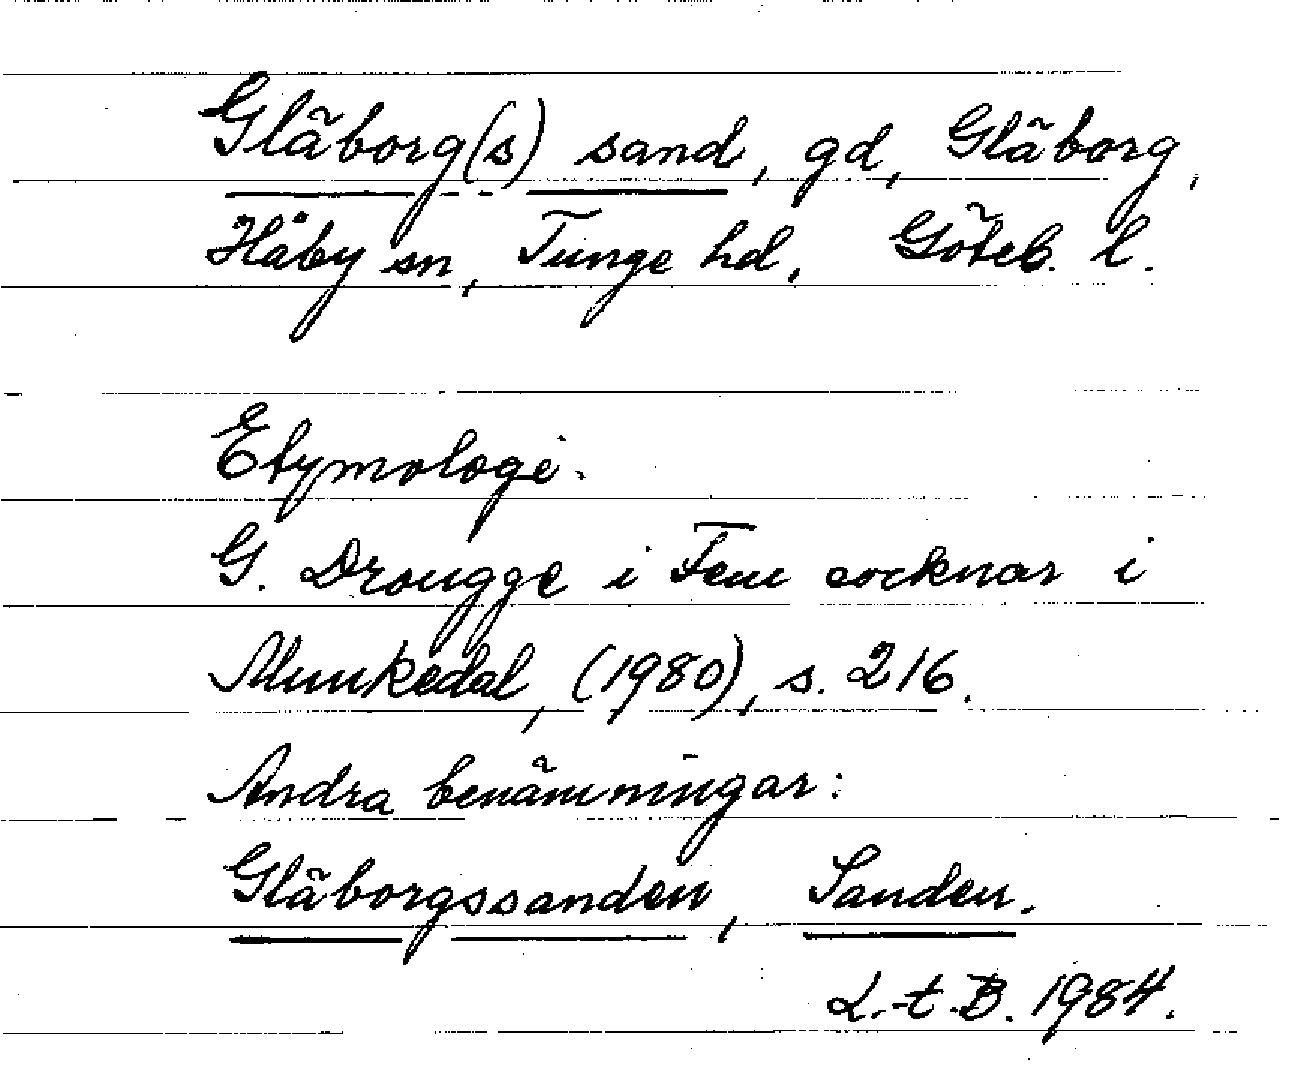 Gläborg(s) sand, gd, Gläborg,
Håby sn, Tunge hd, Göteb. l.
Etymologi.
G. Drougge i Fem socknar i
Munkedal, (1980), s. 216.
Andra benämningar:
Gläborgssanden, Sanden.
L.-t. B. 1984.